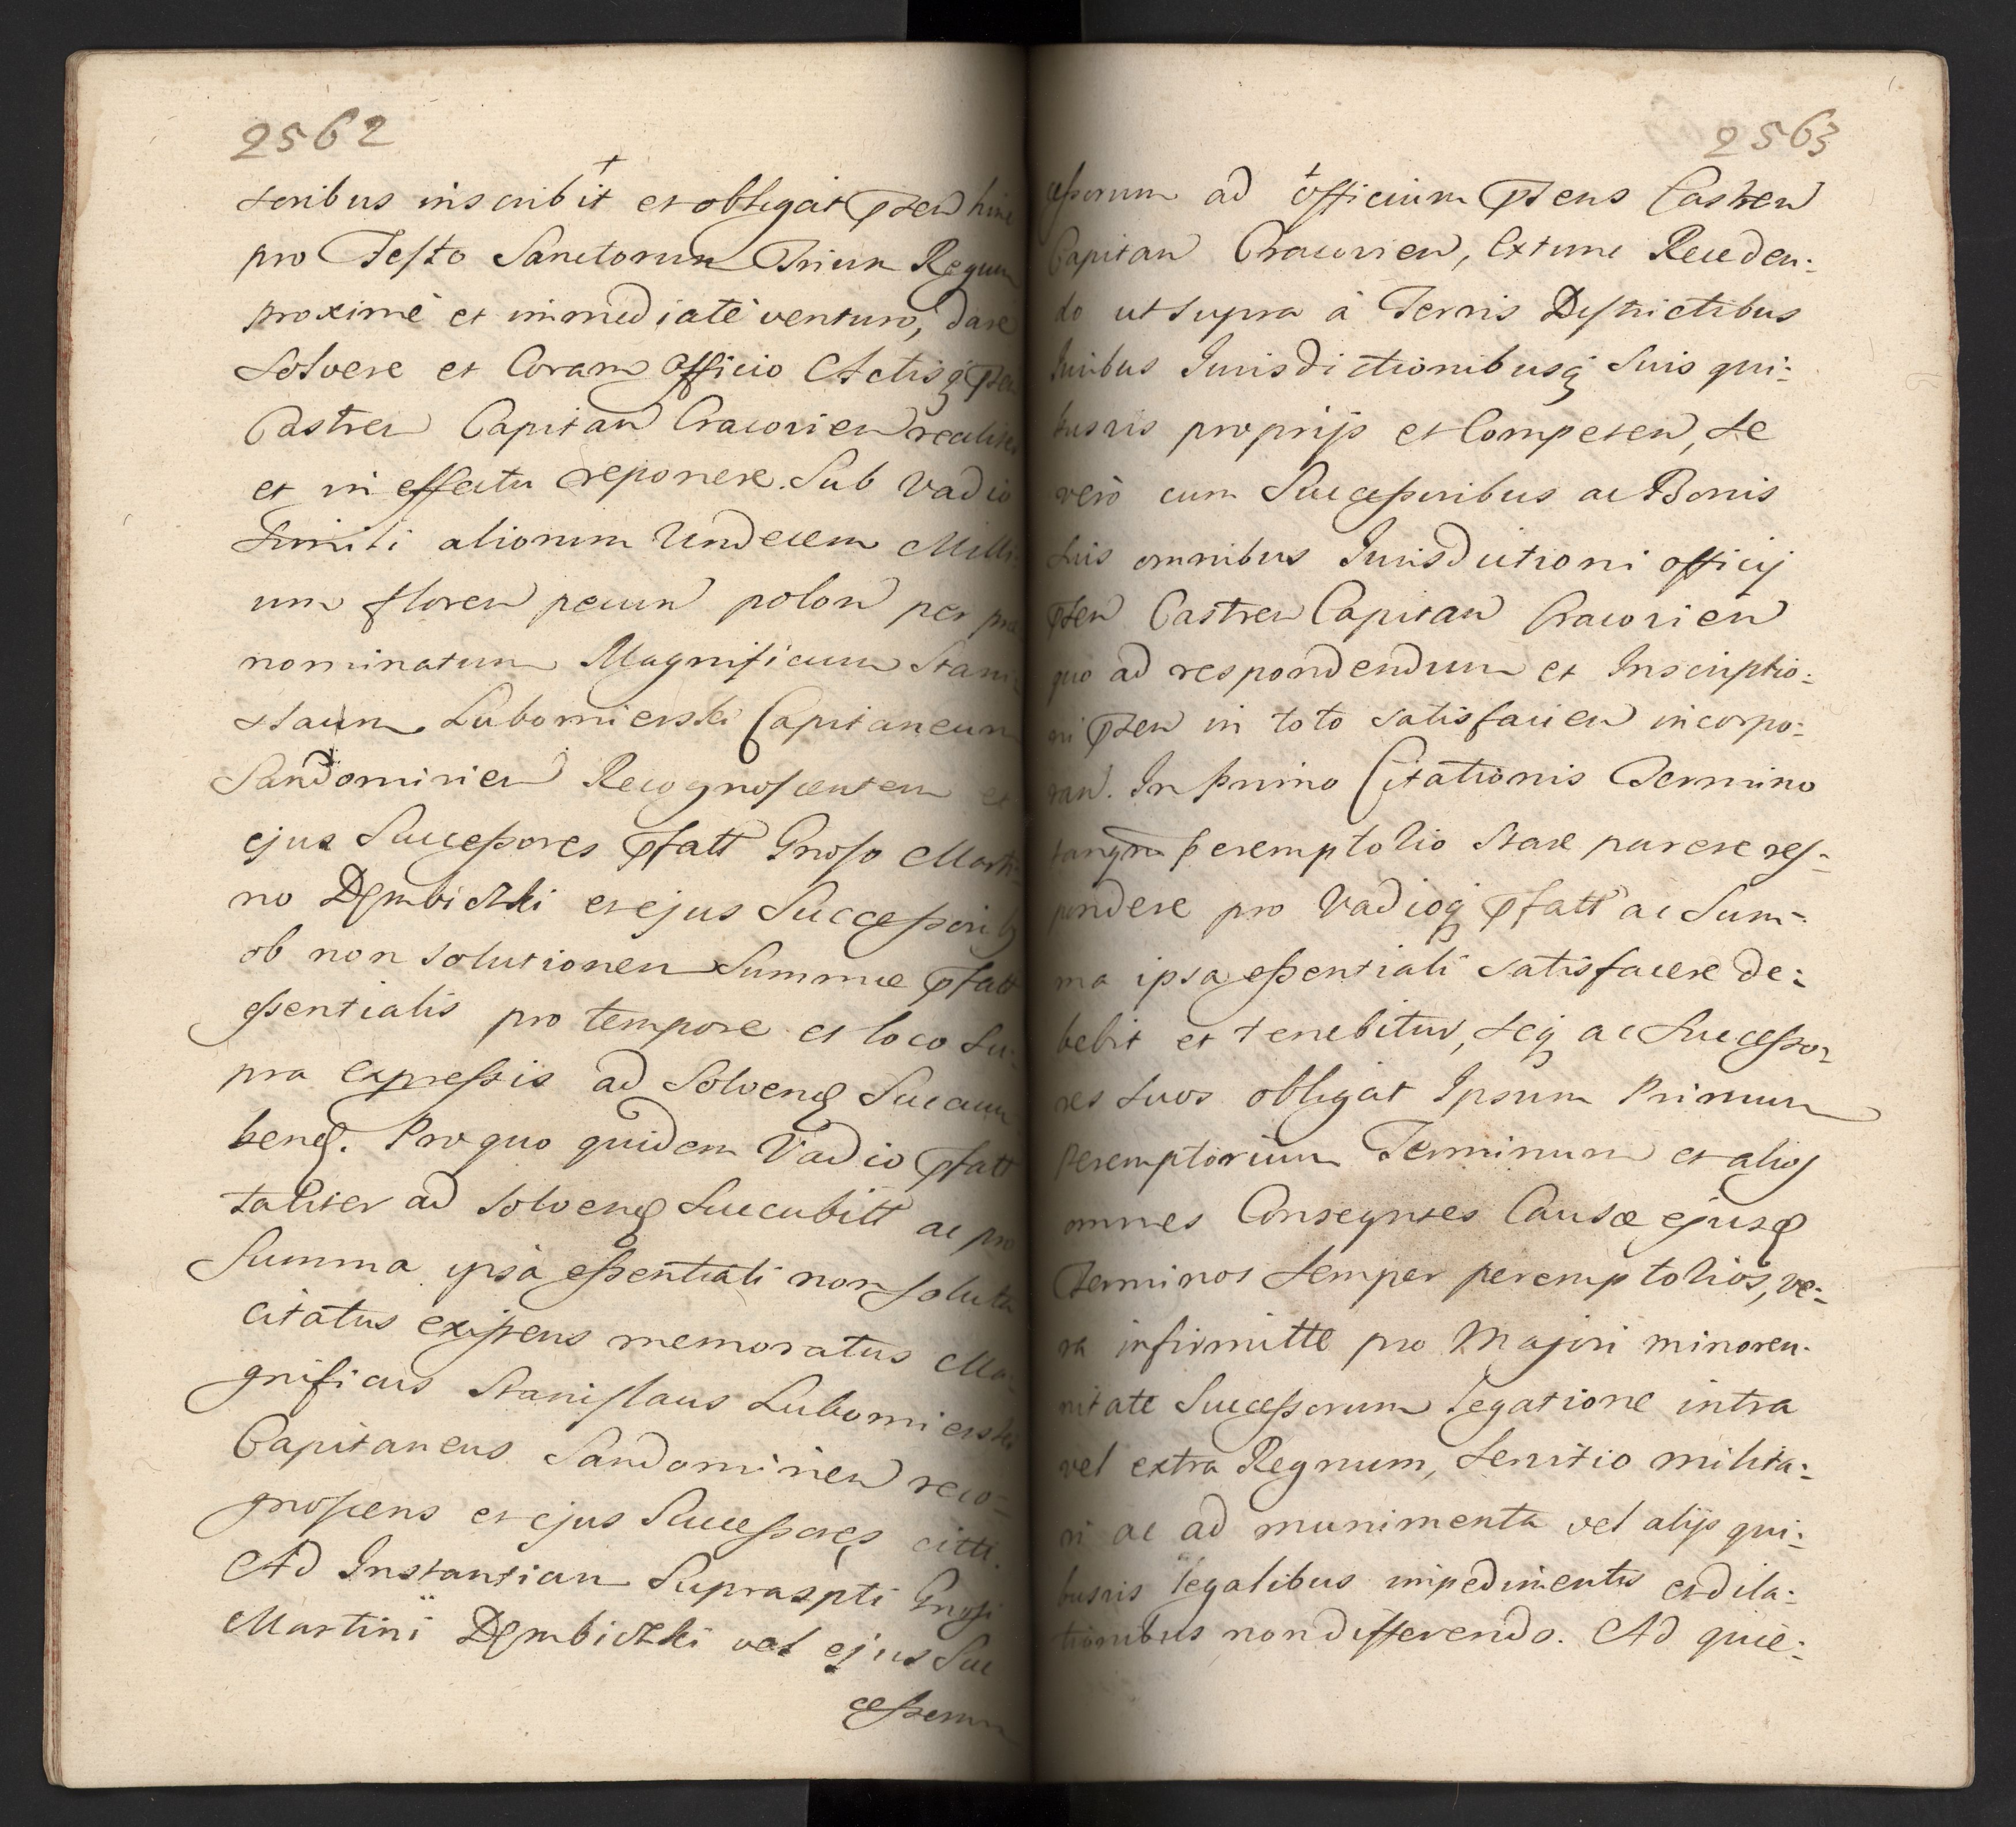 2562
soribus inscribit et obligat pñten hinc
pro Festo Sanctorum Trium Regum
proximè et immediatè venturo, dare
solvere et Coram Officio Actisq pñten
Castren Capitan Cracovien realiter
et in effectu reponere. Sub vadio
simili aliorum Undecem Milli-
um floren pecun polon per præ
nominatum Magnificum Stani-
slaum Lubomierski Capitaneum
Sandomirien Recognoscentem et
ejus Successores pfatt Gnoso Marti-
no Dembiczki et ejus Successorib9
ob non solutionem Summæ pfatt
essentialis pro tempore et loco su-
pra expressis ad Solvend Succum
bend. Pro quo quidem Vadio pfatt
taliter ad solvend succubitt ac pro
Summa ipsa essentiali non soluta
citatus existens memoratus Ma-
gnificus Stanislaus Lubomierski
Capitaneus Sandomirien reco-
gnoscens et ejus Successores citti.
Ad Instantiam Suprascpti Gnosi
Martini Dembiczki vel ejus Suc
cessorum
2563
cessorum ad Officium pñtens Castren
Capitan Cracovien, Extunc Receden-
do ut supra à Terris Districtibus
Iuribus Iurisdictionibusq suis qui-
busvis proprijs et Competen, se
verò cum Successoribus ac Bonis
suis omnibus Iurisdictioni officij
pñten Castren Capitan Cracovien
quo ad respondendum et Inscriptio-
ni pñten in toto satisfacien incorpo-
ran. In primo Citationis Termino
tanqm peremptorio stare parere res-
pondere pro Vadioq pfatt ac Sum-
ma ipsa essentiali satisfacere de-
bebit et tenebitur, seq ac Successo-
res suos obligat Ipsum Primum
peremptorium Terminum et alios
omnes Consequtes Causæ ejusd
Terminos semper peremptorios, ve-
ra infirmitte pro Majori minoren-
nitate Successorum legatione intra
vel extra Regnum, servitio milita-
ri ac ad munimenta vel alijs qui-
busvis legalibus impedimentis et dila-
tionibus non differendo. Ad quie-